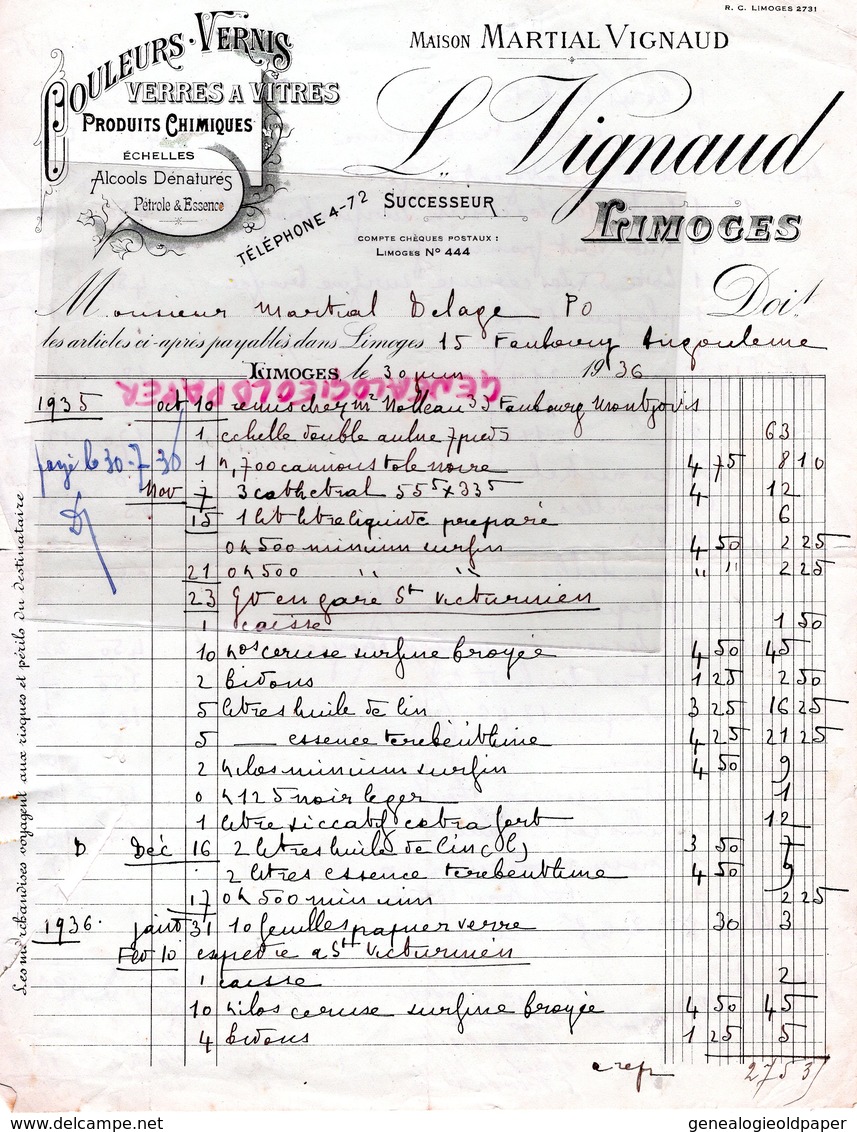 R. C. LIMOGES 2731
COULEURS · VERNIS
VERRES A VITRES
PRODUITS CHIMIQUES
ÉCHELLES
Alcools Dénaturés
Pétrole & Essence
MAISON MARTIAL VIGNAUD
L. Vignaud
SUCCESSEUR
LIMOGES
TÉLÉPHONE 4-72
COMPTE CHÈQUES POSTAUX :
LIMOGES N° 444
Monsieur Martial Delage PO Doit
les articles ci-après payables dans Limoges 15 Faubourg Angouleme
LIMOGES le 30 juin 1936
GENEALOGIEOLDPAPER
1935 oct 10 remis chez Mr 33 Faubourg Montjovis
1 echelle double aulne 7 pieds 63
payé le 30-7-36
1 k,700 tole noire 4 75 8 10
Nov 7 3 cathedral 55 5 x 33 5 4 12
15 1 litre liquide preparé 6
0k500 minium surfin 4 50 2 25
21 0k500 " " " " 2 25
23 GV en gare St Victurnien
1 caisse 1 50
10 kos ceruse surfine broyée 4 50 45
2 bidons 1 25 2 50
5 litres huile de lin 3 25 16 25
5 — essence terebenthine 4 25 21 25
2 kilos minium surfin 4 50 9
0k125 noir leger 1
1 litre siccatif extra fort 12
D Déc 16 2 litres huile de lin 3 50 7
2 litres essence terebenthine 4 50 9
17 0k500 minium 2 25
1936. janv 31 10 feuilles papier verre 30 3
Fev 10 expedie a St Victurnien
1 caisse 2
10 kilos ceruse surfine broyée 4 50 45
4 bidons 1 25 5
a rep 275 35
Les marchandises voyagent aux risques et périls du destinataire
www.delcampe.net
genealogieoldpaper